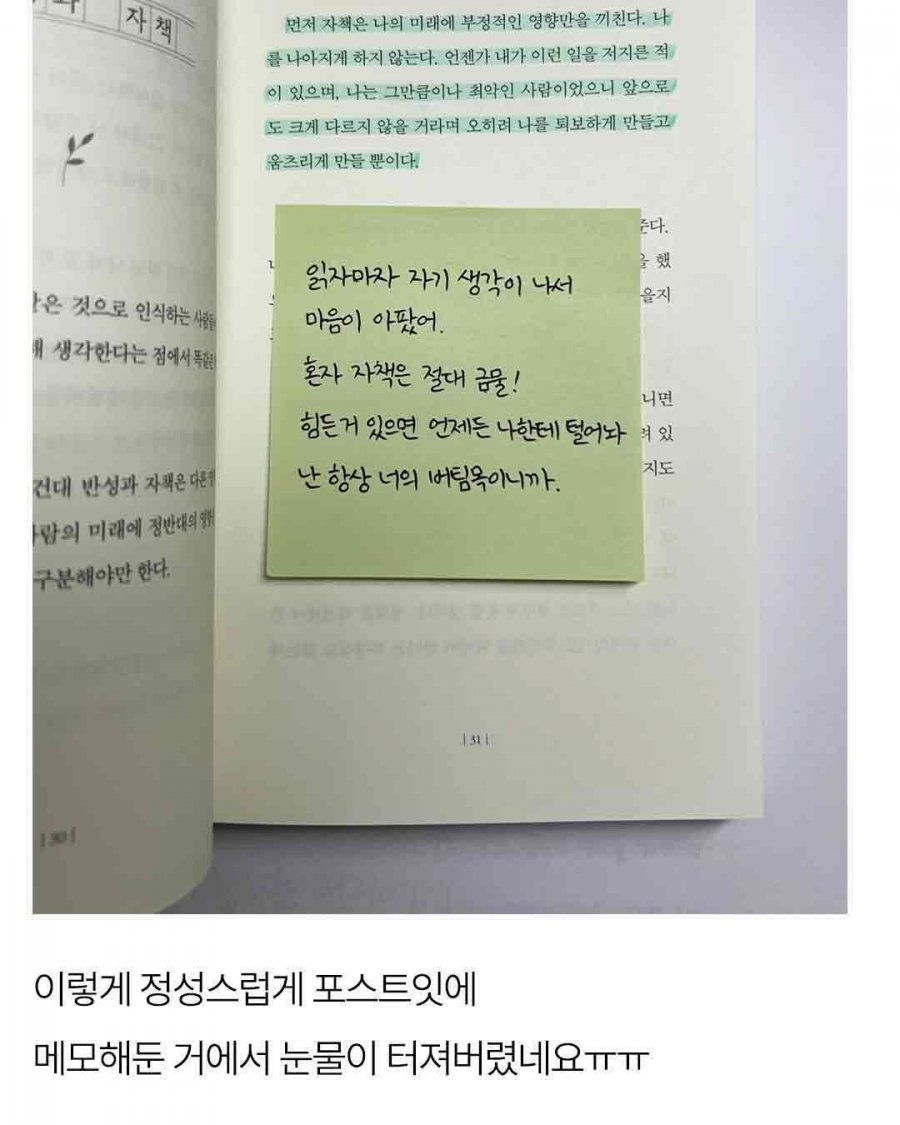 자책
먼저 자책은 나의 미래에 부정적인 영향만을 끼친다. 나
를 나아지게 하지 않는다. 언젠가 내가 이런 일을 저지른 적
이 있으며, 나는 그만큼이나 최악인 사람이었으니 앞으로
도 크게 다르지 않을 거라며 오히려 나를 퇴보하게 만들고
움츠리게 만들 뿐이다.
은 것으로 인식하는 사람들
생각한다는 점에서 똑같은
건대 반성과 자책은 다른
람의 미래에 정반대의
구분해야만 한다.
| 30 |
준다.
을 했
을지
니면
려 있
지도
읽자마자 자기 생각이 나서
마음이 아팠어.
혼자 자책은 절대 금물!
힘든거 있으면 언제든 나한테 털어놔
난 항상 너의 버팀목이니까.
| 31 |
이렇게 정성스럽게 포스트잇에
메모해둔 거에서 눈물이 터져버렸네요ㅠㅠ